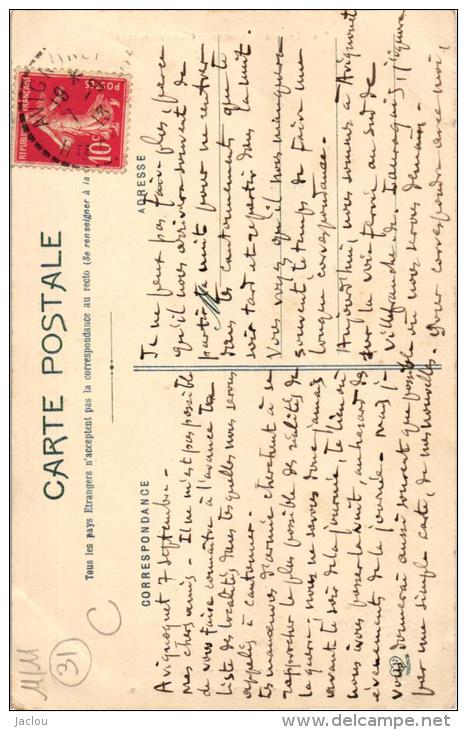 CARTE POSTALE
Tous les pays Etrangers n'acceptent pas la correspondance au recto (Se renseigner à la
CORRESPONDANCE
ADRESSE
REPUBLIQUE FRANÇAISE
POSTES
10c
Avignonet 7 septembre -
Mes chers amis - Il ne m'est pas possible
de vous faire connaître à l'avance la
liste des localités dans lesquelles nous serons
appelés à cantonner -
Les manœuvres d'armée cherchant à se
rapprocher le plus possible des réalités de
la guerre - nous ne savons donc jamais
avant le soir de la journée, le lieu où
nous irons passer la nuit, au hasard des
évènements de la journée - Mais je
vous donnerai aussi souvent que possible
par une simple carte, de mes nouvelles.
Je ne peux pas faire plus parce
qu'il nous arrivera souvent de
partir la nuit pour ne rentrer
dans les cantonnements que le
soir tard et repartir dans la nuit.
Vous voyez qu'il nous manquera
souvent le temps de faire une
longue correspondance.
Aujourd'hui, nous sommes à Avignonet
sur la voie ferrée au sud de
Villefranche de Lauraguais, j'ignore
où nous serons demain.
Pour correspondre avec moi,
M/M
31
C
Jaclou
www.delcampe.net